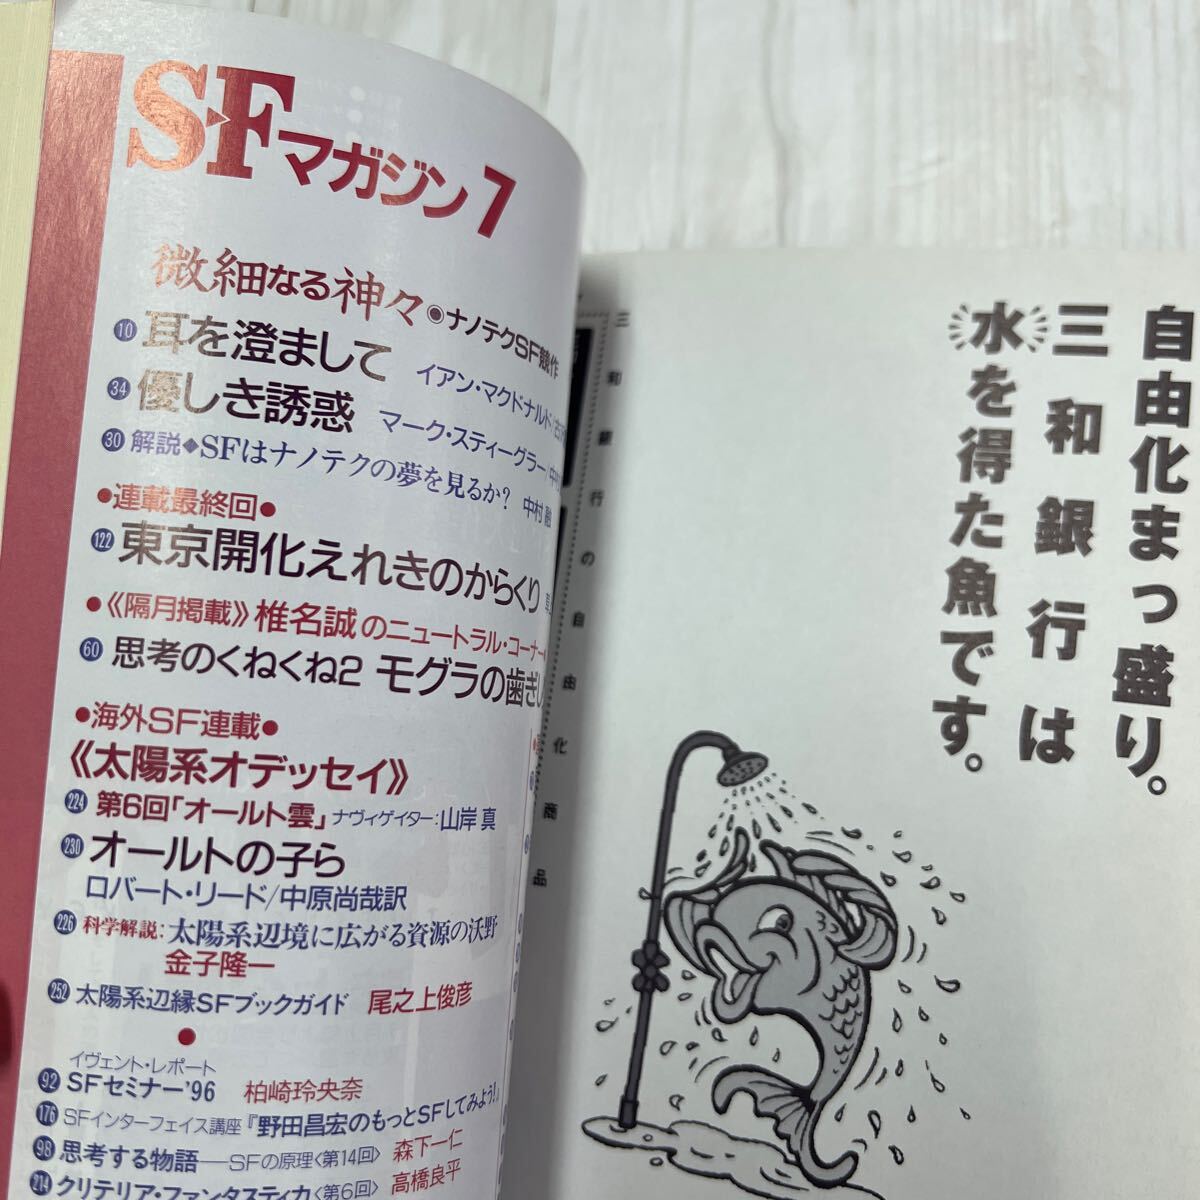 SFマガジン7
微細なる神々◉ナノテクSF競作
10 耳を澄まして イアン・マクドナルド/古
34 優しき誘惑 マーク・スティーグラー/中村
30 解説◆SFはナノテクの夢を見るか? 中村融
●連載最終回●
122 東京開化えれきのからくり
●《隔月掲載》椎名誠のニュートラル・コーナー●
60 思考のくねくね2 モグラの歯ぎし
●海外SF連載●
《太陽系オデッセイ》
224 第6回「オールト雲」 ナヴィゲイター:山岸真
230 オールトの子ら
ロバート・リード/中原尚哉訳
226 科学解説:太陽系辺境に広がる資源の沃野
金子隆一
252 太陽系辺縁SFブックガイド 尾之上俊彦
●
イヴェント・レポート
92 SFセミナー'96 柏崎玲央奈
176 SFインターフェイス講座『野田昌宏のもっとSFしてみよう!』
98 思考する物語──SFの原理〈第14回〉 森下一仁
214 クリテリア・ファンタスティカ〈第6回〉 高橋良平
三和銀行の自由化商品
自由化まっ盛り。
三和銀行は
水を得た魚です。